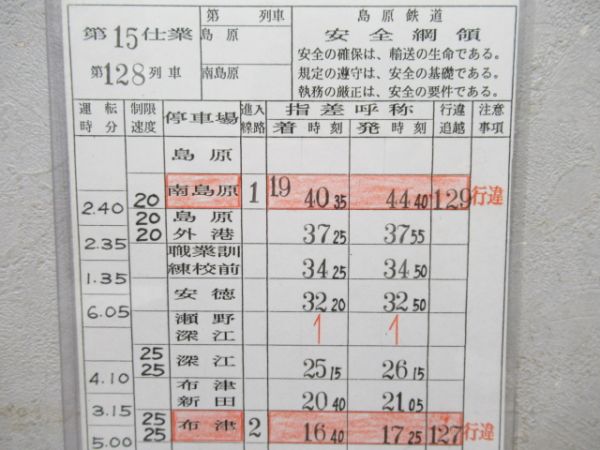 第15仕業
第128列車
第 列車
島原
南島原
島原鉄道
安全綱領
安全の確保は、輸送の生命である。
規定の遵守は、安全の基礎である。
執務の厳正は、安全の要件である。
運転時分 制限速度 停車場 進入線路 指差呼称 行違追越 注意事項
着時刻 発時刻
島原
20 南島原 1 19 40 35 44 40 129 行違
2.40
20 20 島原外港 37 25 37 55
2.35
職業訓練校前 34 25 34 50
1.35
安徳 32 20 32 50
6.05
瀬野深江 1 1
25 25 深江 25 15 26 15
4.10
布津新田 20 40 21 05
3.15
25 25 布津 2 16 40 17 25 127 行違
5.00